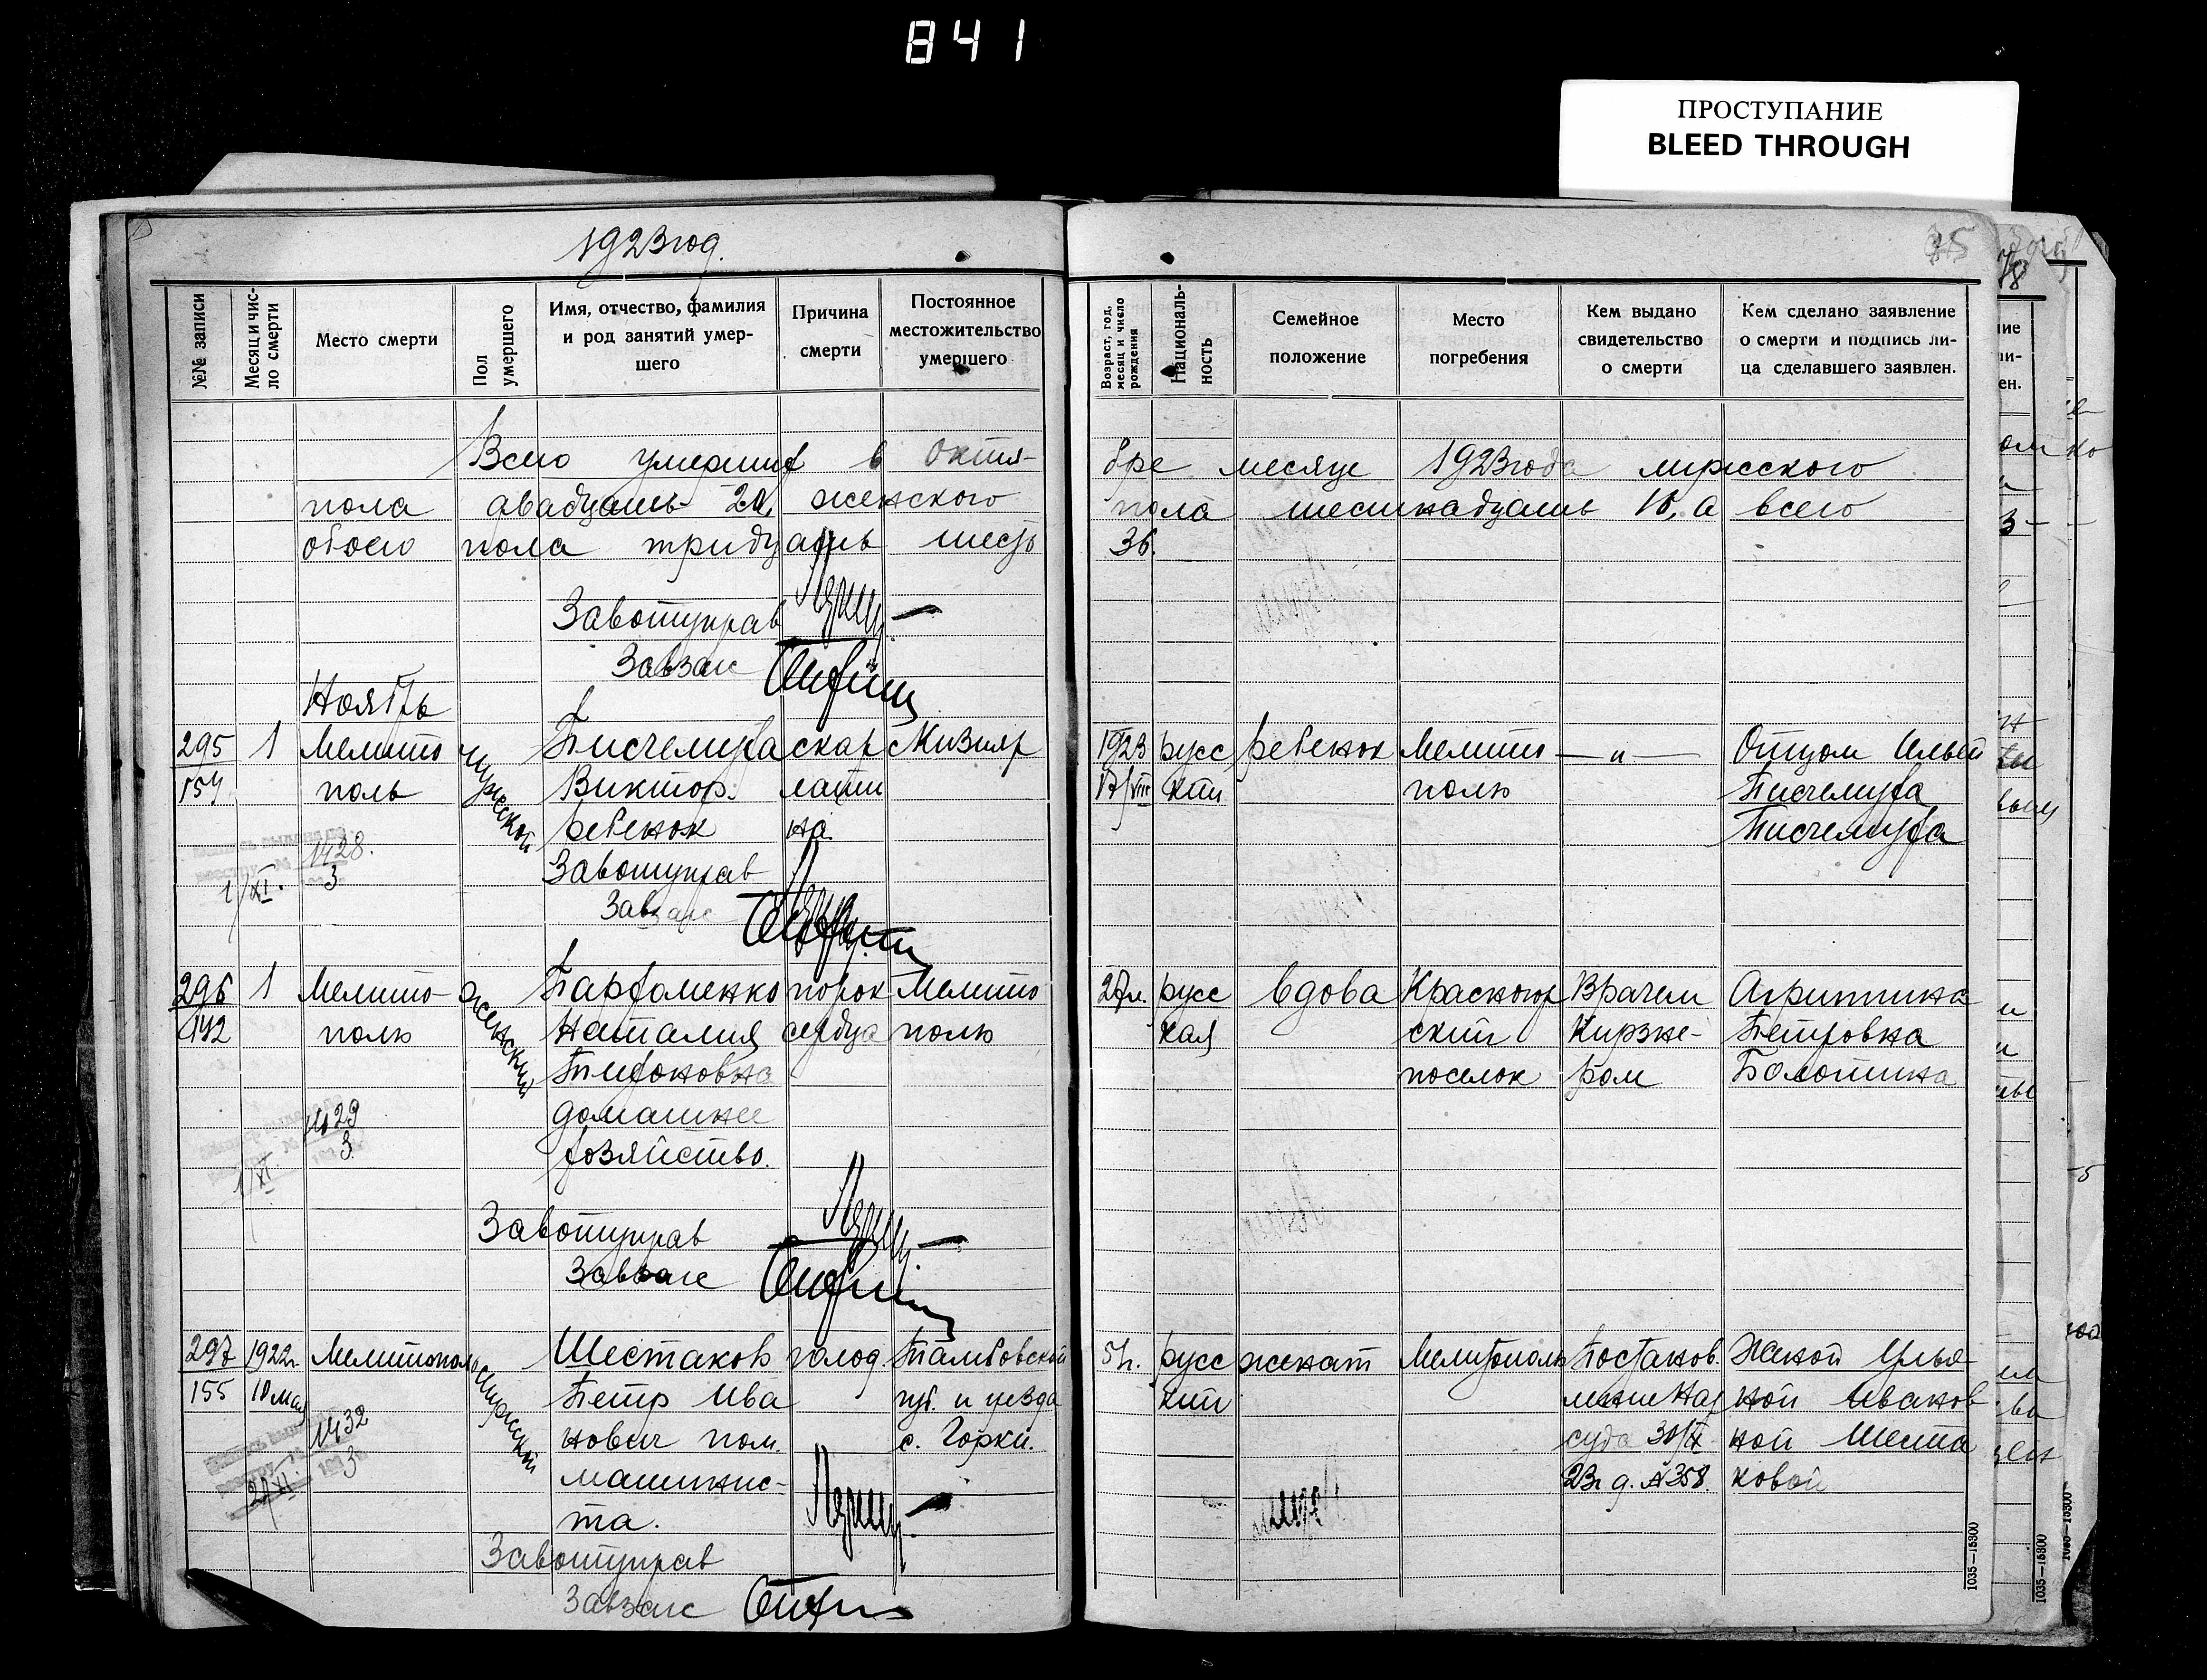 841
ПРОСТУПАНИЕ
BLEED THROUGH
1923 год.
№№ записи
Месяц и чис-
ло смерти
Место смерти
Пол
умершего
Имя, отчество, фамилия
и род занятий умер-
шего
Причина
смерти
Постоянное
местожительство
умершего
Возраст, год,
месяц и число
рождения
Националь-
ность
Семейное
положение
Место
погребения
Кем выдано
свидетельство
о смерти
Кем сделано заявление
о смерти и подпись ли-
ца сделавшего заявлен.
Всего умерших в октя-
бре месяце 1923 года мужского
пола двадцать 20, женского
пола шестнадцать 16, а всего
обоего пола тридцать шесть
36.
Завотуправ
Завзагс
Ноябрь
295 1 Мелито
154 поль
мужской
Виктор.
ребенок
скар
лати
на
Кизияр
1923 русс ребенок Мелито — „ —
17/VIII кий поль
Отцом Ильей
1428.
3
1/XI.
Завотуправ
Завзагс
296 1 Мелито-
192 поль
женский
Парфоменко
Наталия
домашнее
хозяйство.
порок
сердца
Мелито
поль
27 л. русс
кая
вдова
Красногор
ский
поселок
Врачем
Кирзне-
ром
Агрипина
Петровна
Болотина
1429
3
1/XI
Завотуправ
Завзагс
297 1922 г. Мелитополь
155 10 мая
мужской
Шестаков
Петр Ива
нович пом.
машинис-
та.
голод.
Тамбовской
губ. и уезда
с. Горки.
51 г. русс
кий
женат
Мелитополь
Постанов.
суда 30/X
23 г. д. №358.
Женой Улья
ной Иванов
ной Шеста
ковой
1432
3
2/XI
Завотуправ
Завзагс
1035—15800
1035—15800